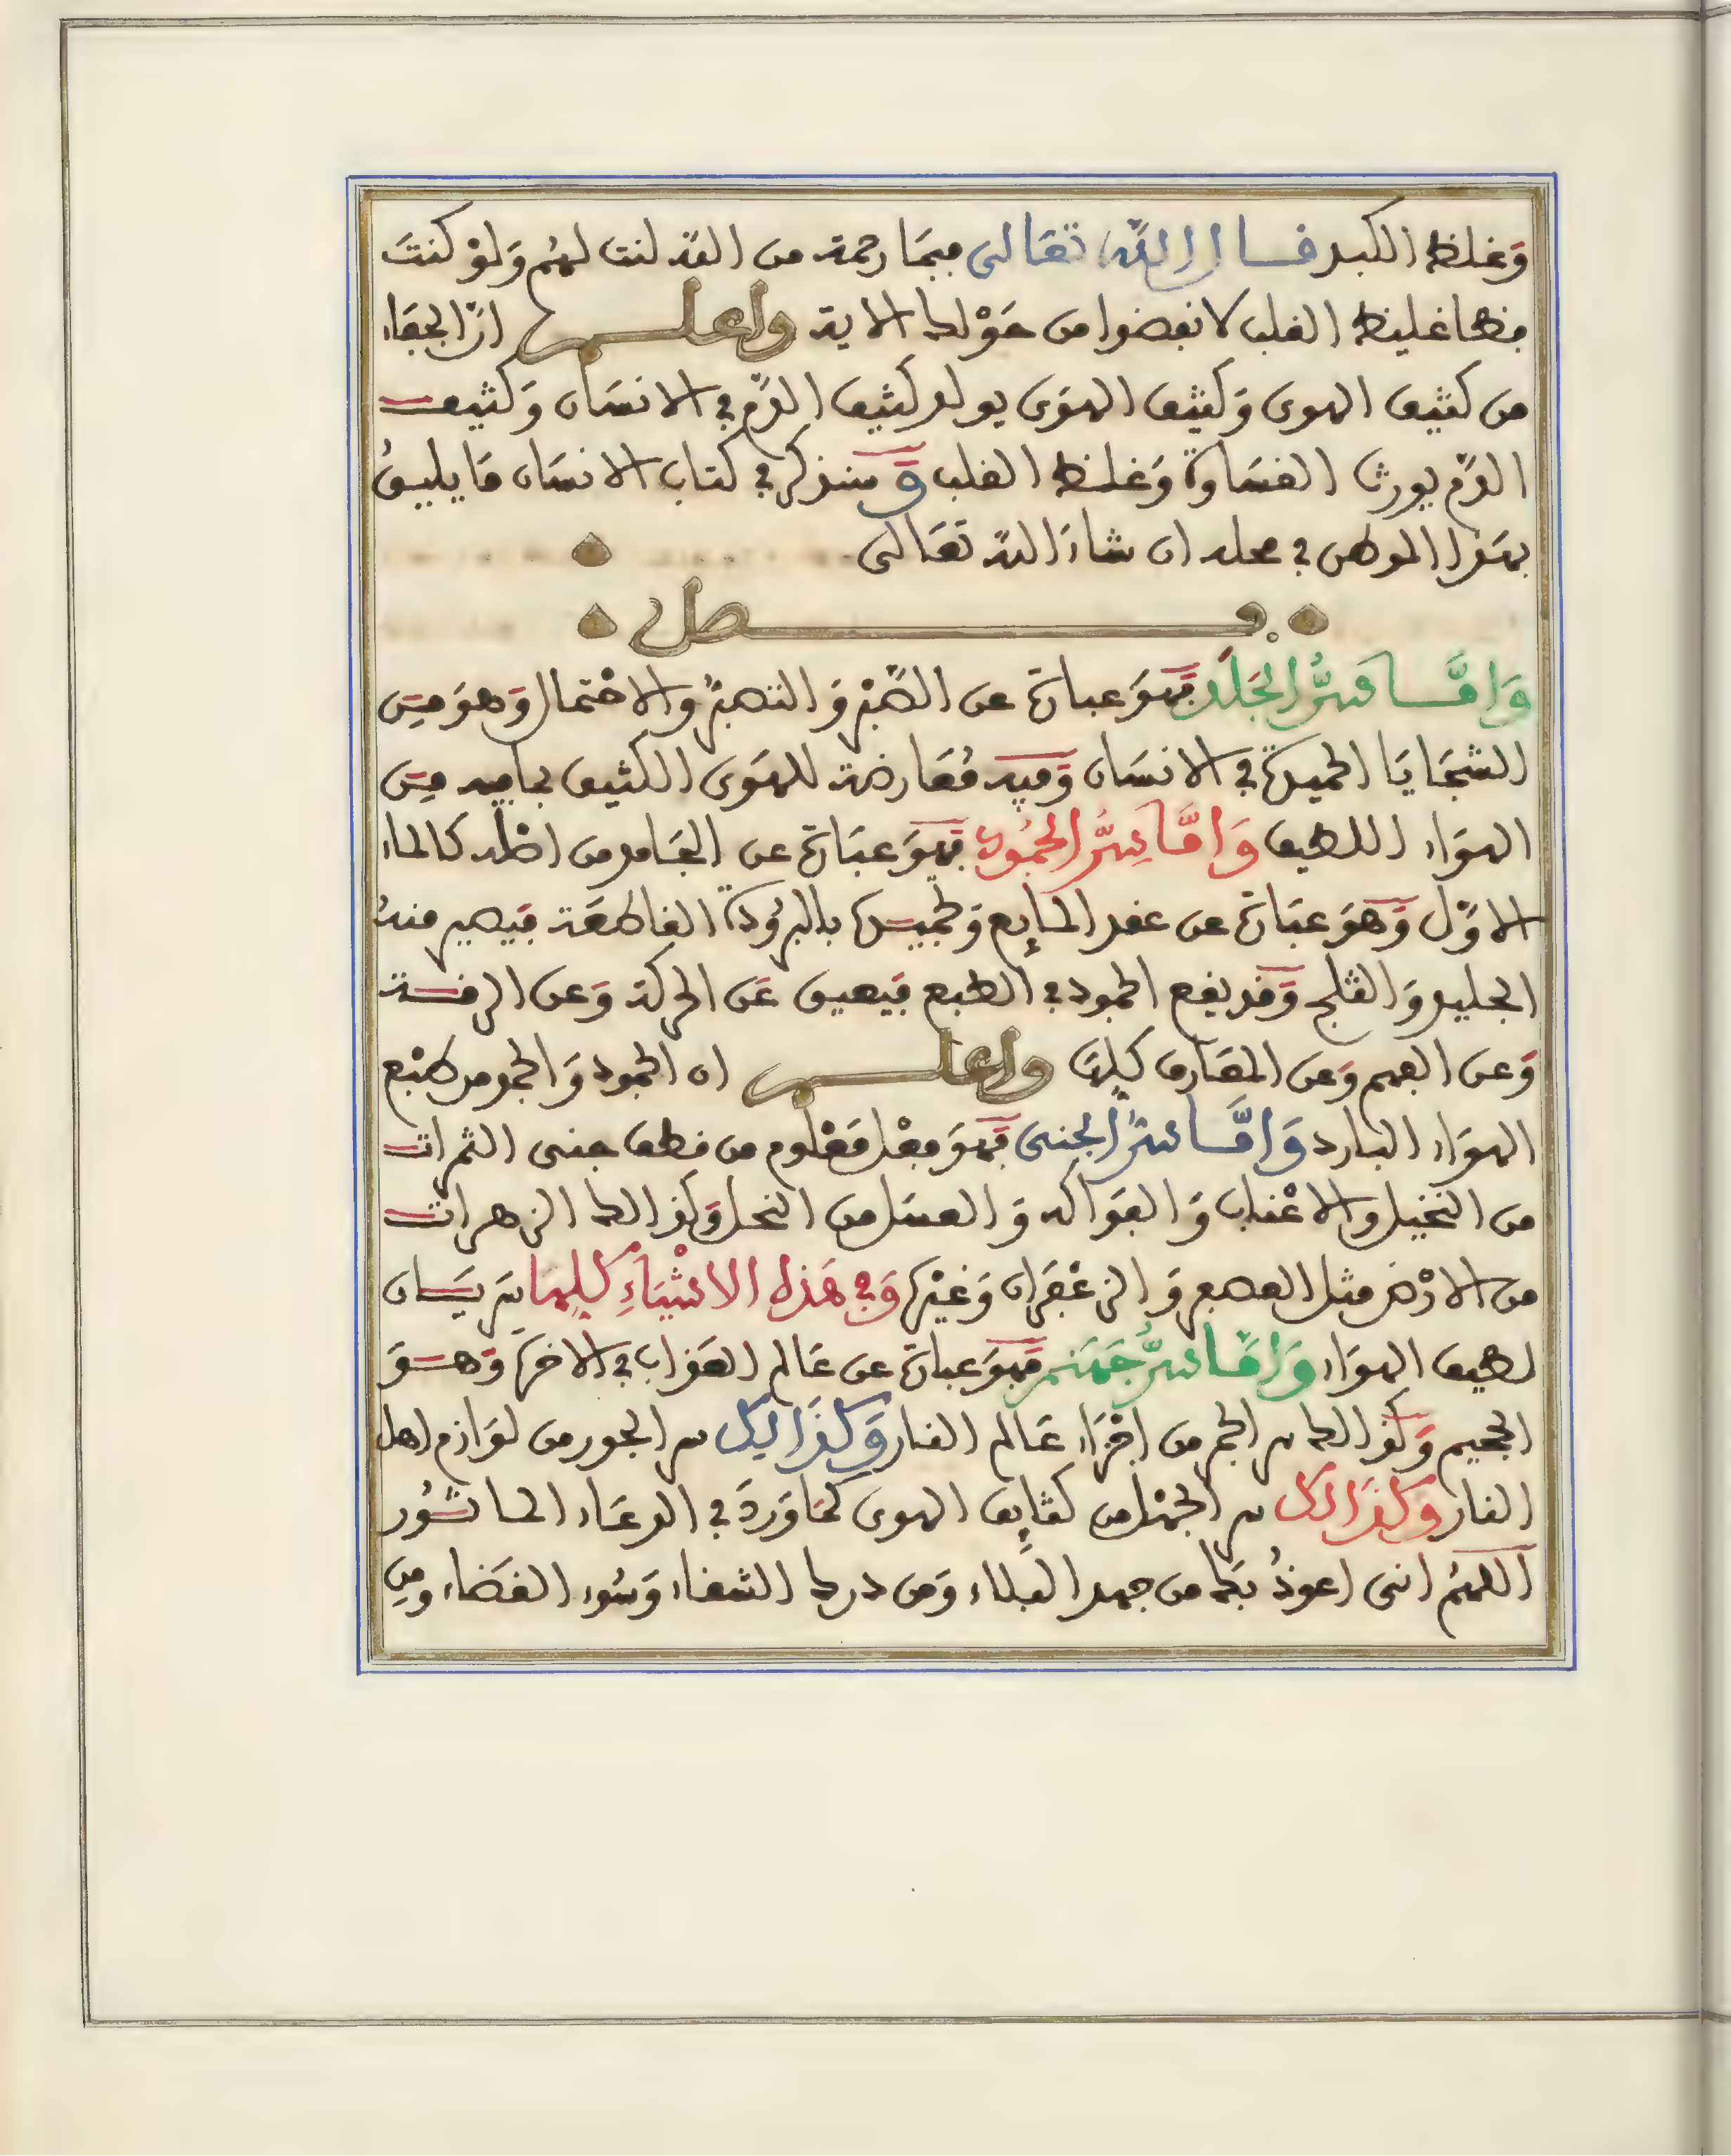 وَغلظ الكبد قال الله تعالى فبما رحمة من الله لنت لهم وَلوْ كنتَ
فظا غليظ القلب لانفضوا من حَوْلك الاية واعلم ان الجفاء
من كثيف الهوى وَكثيف الهوَى يولد كثيف الدّم في الانسَان وَكثيف
الدّم يورث القسَاوة وَغلظ القلب وَسنذكر في كتاب الانسَان مَا يليق
بهَذا الموطن في محله ان شاءَ الله تعَالى
فصل
وَامَّا سرُّ الجَلَد فهوَ عبارة عن الصّبْر وَالتصبّر والاحْتمال وَهوَ مِن
السّجَايَا الحميدة في الانسَان وَفيه مُعَارضة للهوَى الكثيف بما فيه مِن
الهوَاء اللطيف وَامَّا سِرُّ الجمُود فهوَ عبَارة عن الجَامد من اصْله كالماء
الاوّل وَهوَ عبَارة عن عقد المايع وَتجميده بالبرُودَة القاطعَة فيصير منهُ
الجليد وَالثلج وَقد يقع الجمود في الطبع فيعيق عَن الحركة وَعن الرقة
وَعن الفهم وَعن المعَارف كلهَا واعلم ان الجمود وَالجمود من طبْع
الهوَاء البارد وَامَّا سرّ الجنى فهوَ فعْل مَعْلوم من قطف جنى الثمرات
من النخيل والاعْناب وَالفوَاكه وَالعسَل من النحل وَكذالك الزهرات
من الارْض مثل العصفر وَالزعْفرَان وَغيْرها وَفي هَذه الاشْيَاءِ كلِهَا سَرَيَان
لطيف الهوَاء وَامَّا سرُّ جَهَنم فهوَ عبارة عن عَالم العَذاب في الاخرة وَهوَ
الجحيم وَكذالك سر الجمر من اجْزَاء عَالم النار وَكذَالِك سر الجور من لوَازم اهل
النار وَكذَالِك سر الجهْل من كثايف الهوى كمَا وَرَدَ في الدعَاء الماثُور
اللهمُ انى اعوذُ بَك من جهد البلاء وَمن درك الشقاء وَسُوء القضَاء ومِن